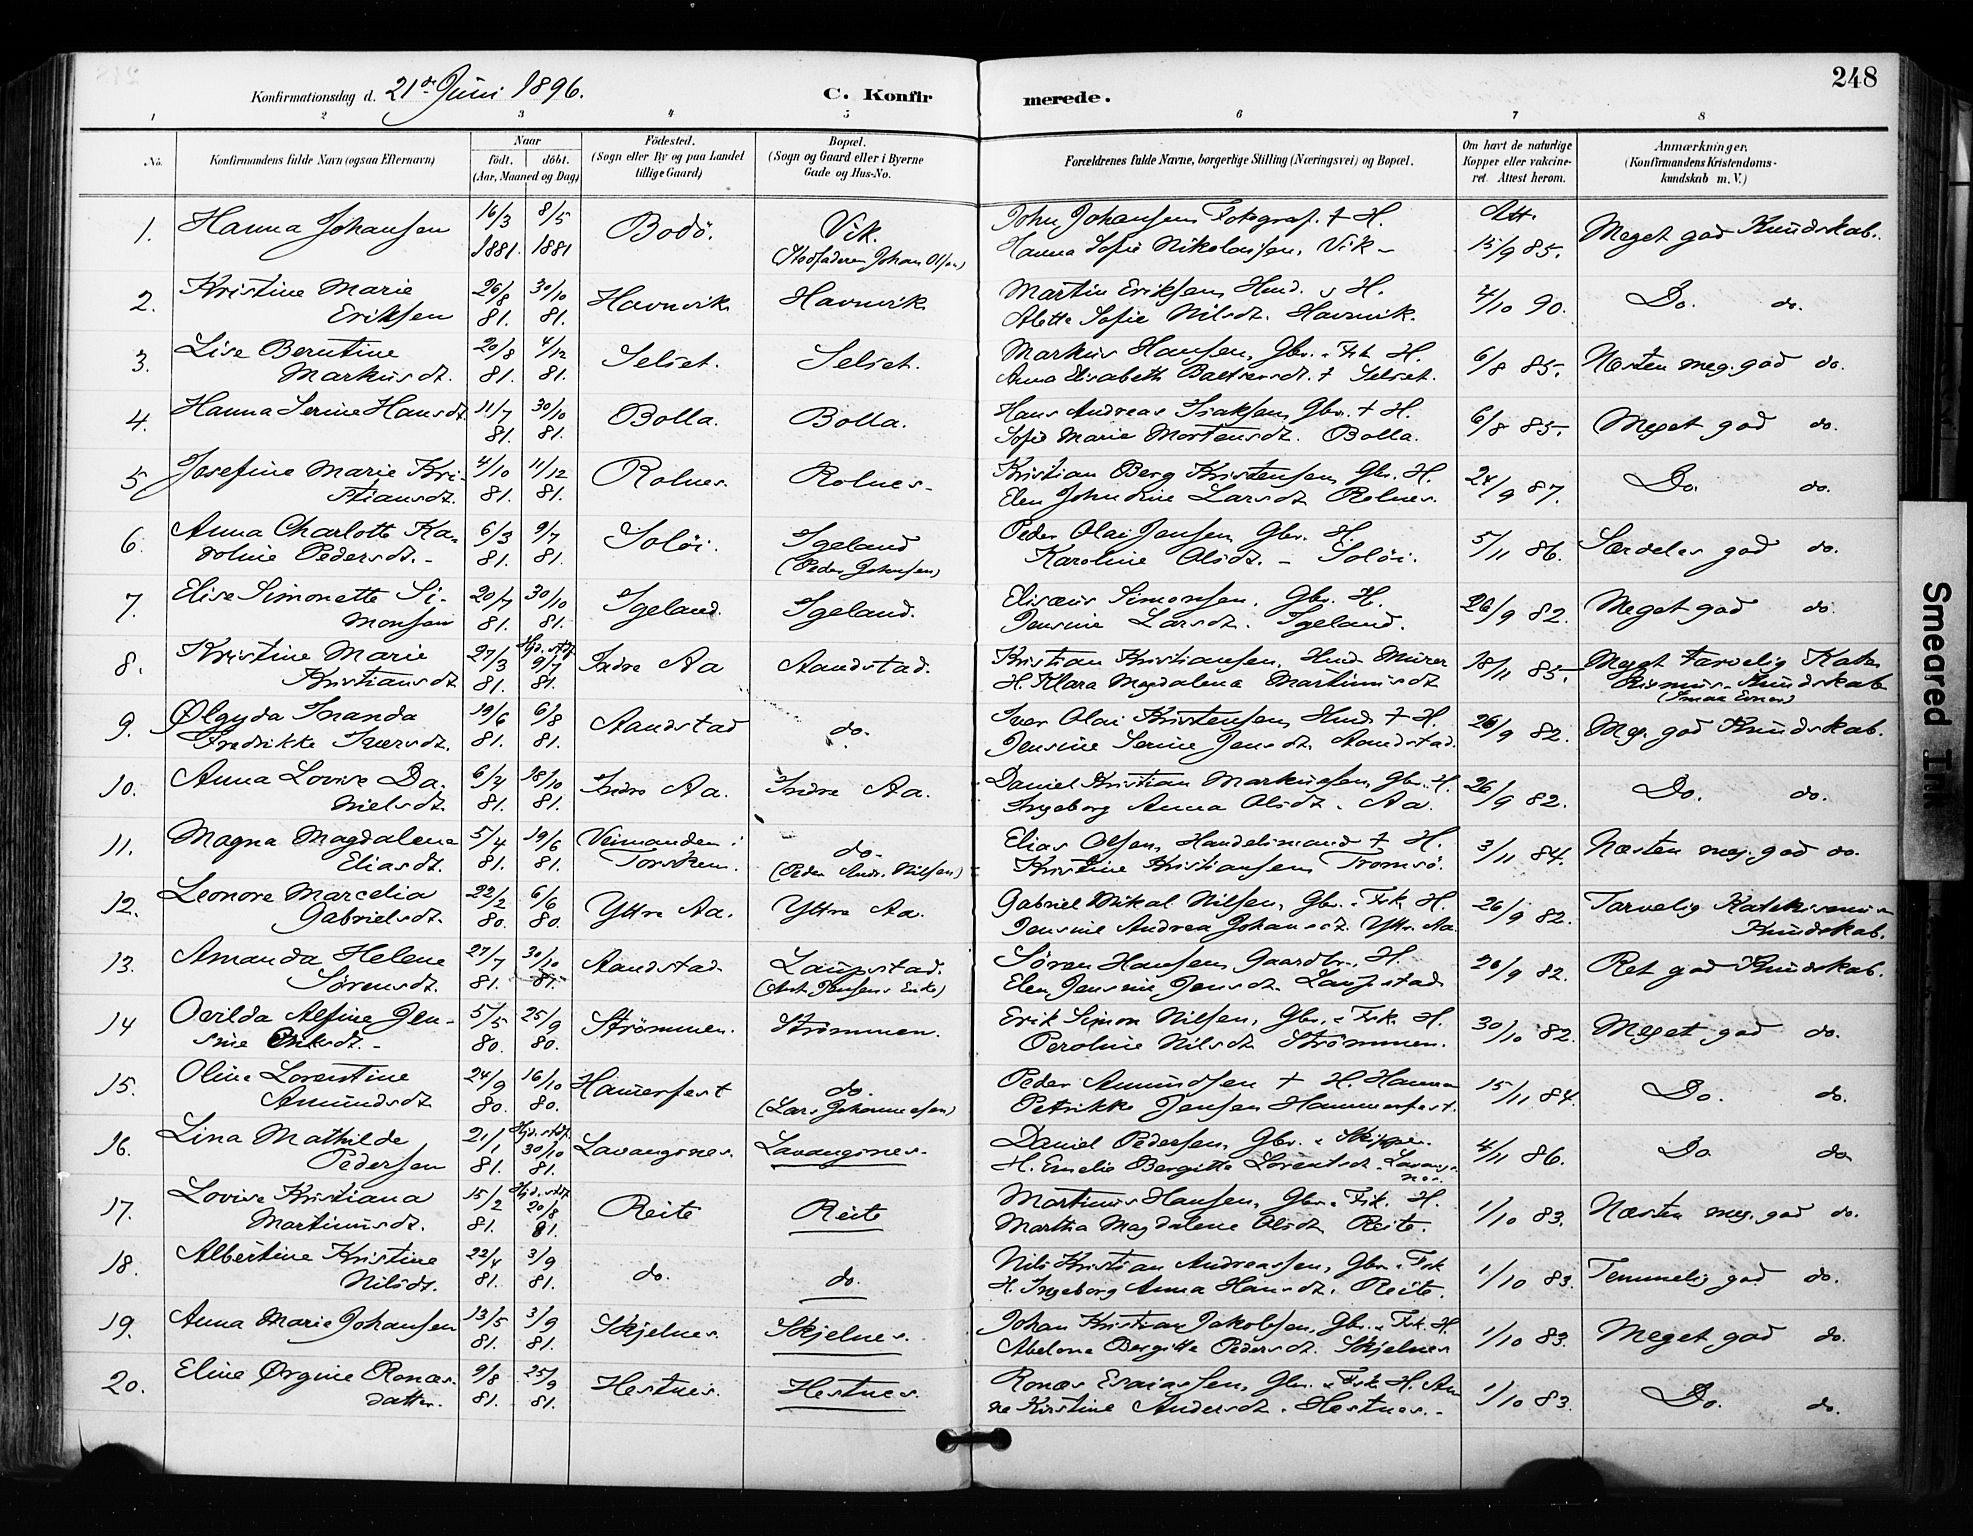 248
Konfirmationsdag d. 21de Juni 1896. C. Konfirmerede.
1 2 3 4 5 6 7 8
No. Konfirmandens fulde Navn (ogsaa Efternavn) Naar født. døbt. (Aar, Maaned og Dag) Fødested. (Sogn eller By og paa Landet tillige Gaard) Bopæl. (Sogn og Gaard eller i Byerne Gade og Hus-No. Forældrenes fulde Navne, borgerlige Stilling (Næringsvei) og Bopæl. Om havt de naturlige Kopper eller vakcineret. Attest herom. Anmærkninger. (Konfirmandens Kristendomskundskab m. V.)
1. Hanna Johansen 16/3 1881. 8/5 1881 Bodö. Vik. (Stedfaderen Johan Olsen) John Johansen Fotograf. + H. Att.
Hanna Sofie Nikolaisen, Vik - 15/9 85. Meget god Kundskab.
2. Kristine Marie 26/8 30/10 Havnvik Havnvik Martin Eriksen, Hmd. & H. 4/10 90. Do. do.
Eriksen 81. 81. Alette Sofie Nilsdt. Havnvik.
3. Lise Berntine 20/8 4/12 Selset. Selset. Markus Hansen, Gbr. & Fisk H. 6/8 85. Næsten meg. god do.
Markusdt. 81. 81. Anna Elisabeth Baltsersdt. + Selset.
4. Hanna Serine Hansdt. 11/7 30/10 Bolla. Bolla. Hans Andreas Isaksen, Gbr. + H. 6/8 85. Meget god do.
81. 81. Sofie Marie Mortensdt. Bolla.
5 Josefine Marie Kri- 4/10 11/12 Rolnes. Rolnes- Kristian Berg Kristensen, Gbr. H. 24/9 87. Do. do.
stiansdt. 81. 81. Elen Johndine Larsdt. Rolnes.
6. Anna Charlotte Ka- 6/3 9/7 Soløi. Igeland Peder Olai Jensen Gbr. H. 5/11 86. Særdeles god do.
roline Pedersdt. - 81. 81. (Peder Johansen) Karoline Olsdt. - Soløi.
7. Elise Simonette Si- 20/7 30/10 Igeland. Igeland. Elisæus Simonsen. Gbr. H. 26/9 82. Meget god do.
monsen 81. 81. Jensine Larsdt. Igeland.
8. Kristine Marie 27/3 Hjd. stdf. 9/7 Indre Aa Aandstad. Kristian Kristiansen, Hmd. Murer 18/11 85. Meget Tarvelig Kate-
Kristiansdt. 81. 81. H. Klara Magdalena Martinusdt kismus-Kundskab
9. Ølgyda Inanda 19/6 6/8 Aandstad do. Iver Olai Kristensen, Hmd. + H. 26/9 82. Meg. god Kundskab.
Fredrikke Iversdt. 81. 81. Jensine Serine Jensdt. Aandstad.
10. Anna Lovise Da- 6/4 18/10 Indre Aa. Indre Aa. Daniel Kristian Markussen, Gbr. H. 26/9 82. Do. do.
nielsdt. 81. 81. Ingeborg Anna Olsdt. Aa.
11. Magna Magdalena 5/4 19/6 Veimanden i do. Elias Olsen, Handelsmand + H. 3/11 84. Næsten meg. god do.
Eliasdt. 81. 81. Torsken. (Peder Andr. Nilsen) Kristine Kristiansen, Tromsö.
12. Leonore Marcelia 22/2 6/6 Yttre Aa. Yttre Aa. Gabriel Mikal Nilsen, Gbr. & Fisk. H. 26/9 82. Tarvelig Katekismus-
Gabrielsdt. 80. 80. Jensine Andrea Johansdt. Yttr. Aa. Kundskab.
13. Amanda Helene 27/7 30/10 Aandstad Laupstad. Søren Hansen, Gaardbr. H. 26/9 82. Ret god Kundskab.
Sørensdt. 81. 81. (Ant. Jensens Enke) Elen Jensine Jensdt. Laupstad
14 Ovilda Alfine Jen- 5/5 25/9 Strömmen. Strömmen. Erik Simon Nilsen, Gbr. & Fisk. H. 30/10 82. Meget god do.
sine Eriksdt. - 80. 80. Peroline Nilsdt. Strömmen.
15. Oline Lorentine 24/9 16/10 Hamerfest do. Peder Amundsen + H. Hanna 15/11 84. Do. do.
Amundsdt. 80. 80. (Lars Johannesen) Petrikke Jensen Hammerfest.
16. Lina Mathilde 21/1 Hjd. stdf. 30/10 Lavangsnes. Lavangsnes. Daniel Pedersen, Gbr. & Skipper. 4/11 86. Do do
Pedersen 81. 81. H. Emelie Bergitte Lorentsdt. Lavangsnes.
17. Lovise Kristiana 15/2 Hjd. stdf. 20/8 Reite Reite Martinus Hansen, Gbr. & Fisk. H. 1/10 83. Næsten meg. god do.
Martinusdt. 81. 81. Martha Magdalene Olsdt. Reite.
18. Albertine Kristine 22/4 3/9 do. do. Nils Kristian Andreassen, Gbr. & Fisk 1/10 83. Temmelig god do.
Nilsdt. 81. 81. H. Ingeborg Anna Hansdt. Reite.
19. Anna Marie Johansen 13/5 3/9 Skjelnes. Skjelnes. Johan Kristian Jakobsen, Gbr. & Fisk. H. 1/10 83. Meget god do.
81. 81. Abelone Bergitte Pedersdt. Skjelnes
20. Eline Ørgine Ronæs- 9/8 25/9 Hestnes. Hestnes. Ronæs Esaiassen, Gbr. & Fisk. H. An- 1/10 83. Do. do.
datter. 81. 81. ne Kirstine Andersdt. Hestnes. -
Smeared Ink